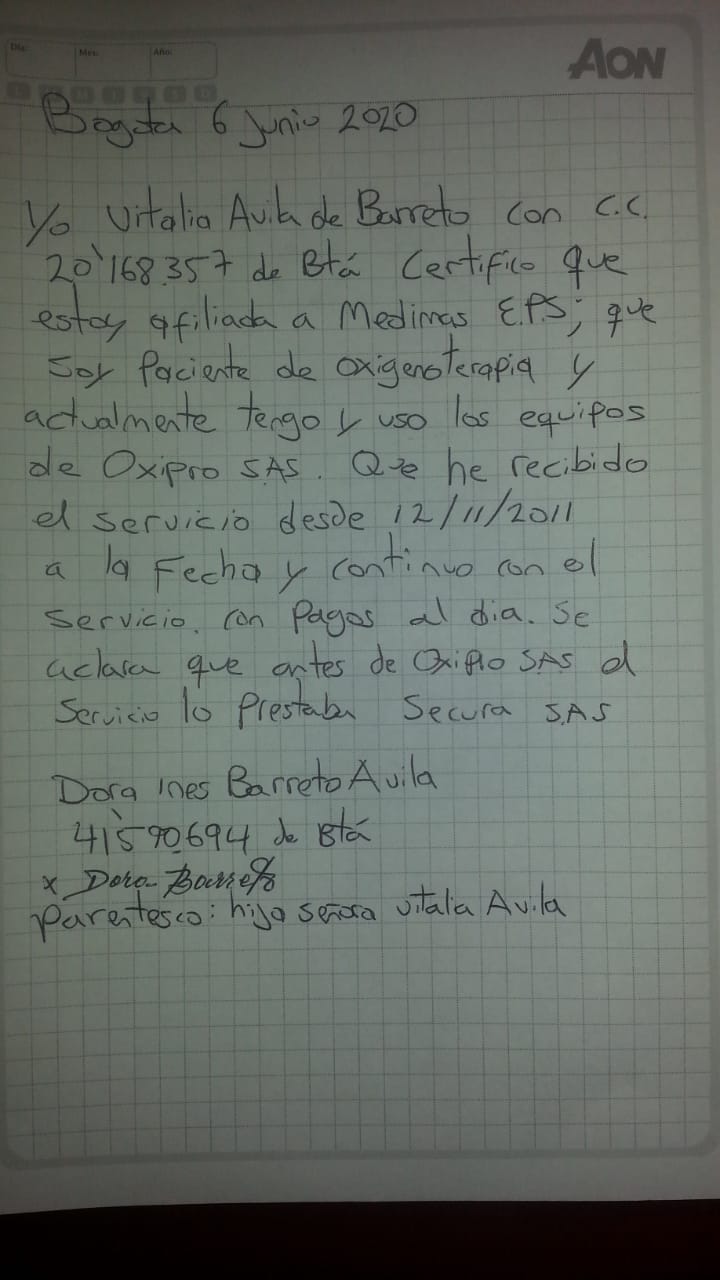 Dia:
Mes:
Año:
AON
Bogota 6 Junio 2020
Yo Vitalia Avila de Barreto con C.C.
20'168.357 de Btá Certifico que
estoy afiliada a Medimas E.P.S; que
Soy Paciente de oxigenoterapia y
actualmente tengo y uso los equipos
de Oxipro SAS. Que he recibido
el servicio desde 12/11/2011
a la Fecha y continuo con el
servicio. con Pagos al dia. Se
aclara que antes de Oxipro SAS el
Servicio lo Prestaba Secura S.A.S
Dora Ines Barreto Avila
41'590.694 de Btá
x Dora Barreto
Parentesco: hija señora vitalia Avila